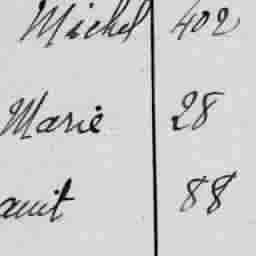 Michel 402
Marie 28
auit 88